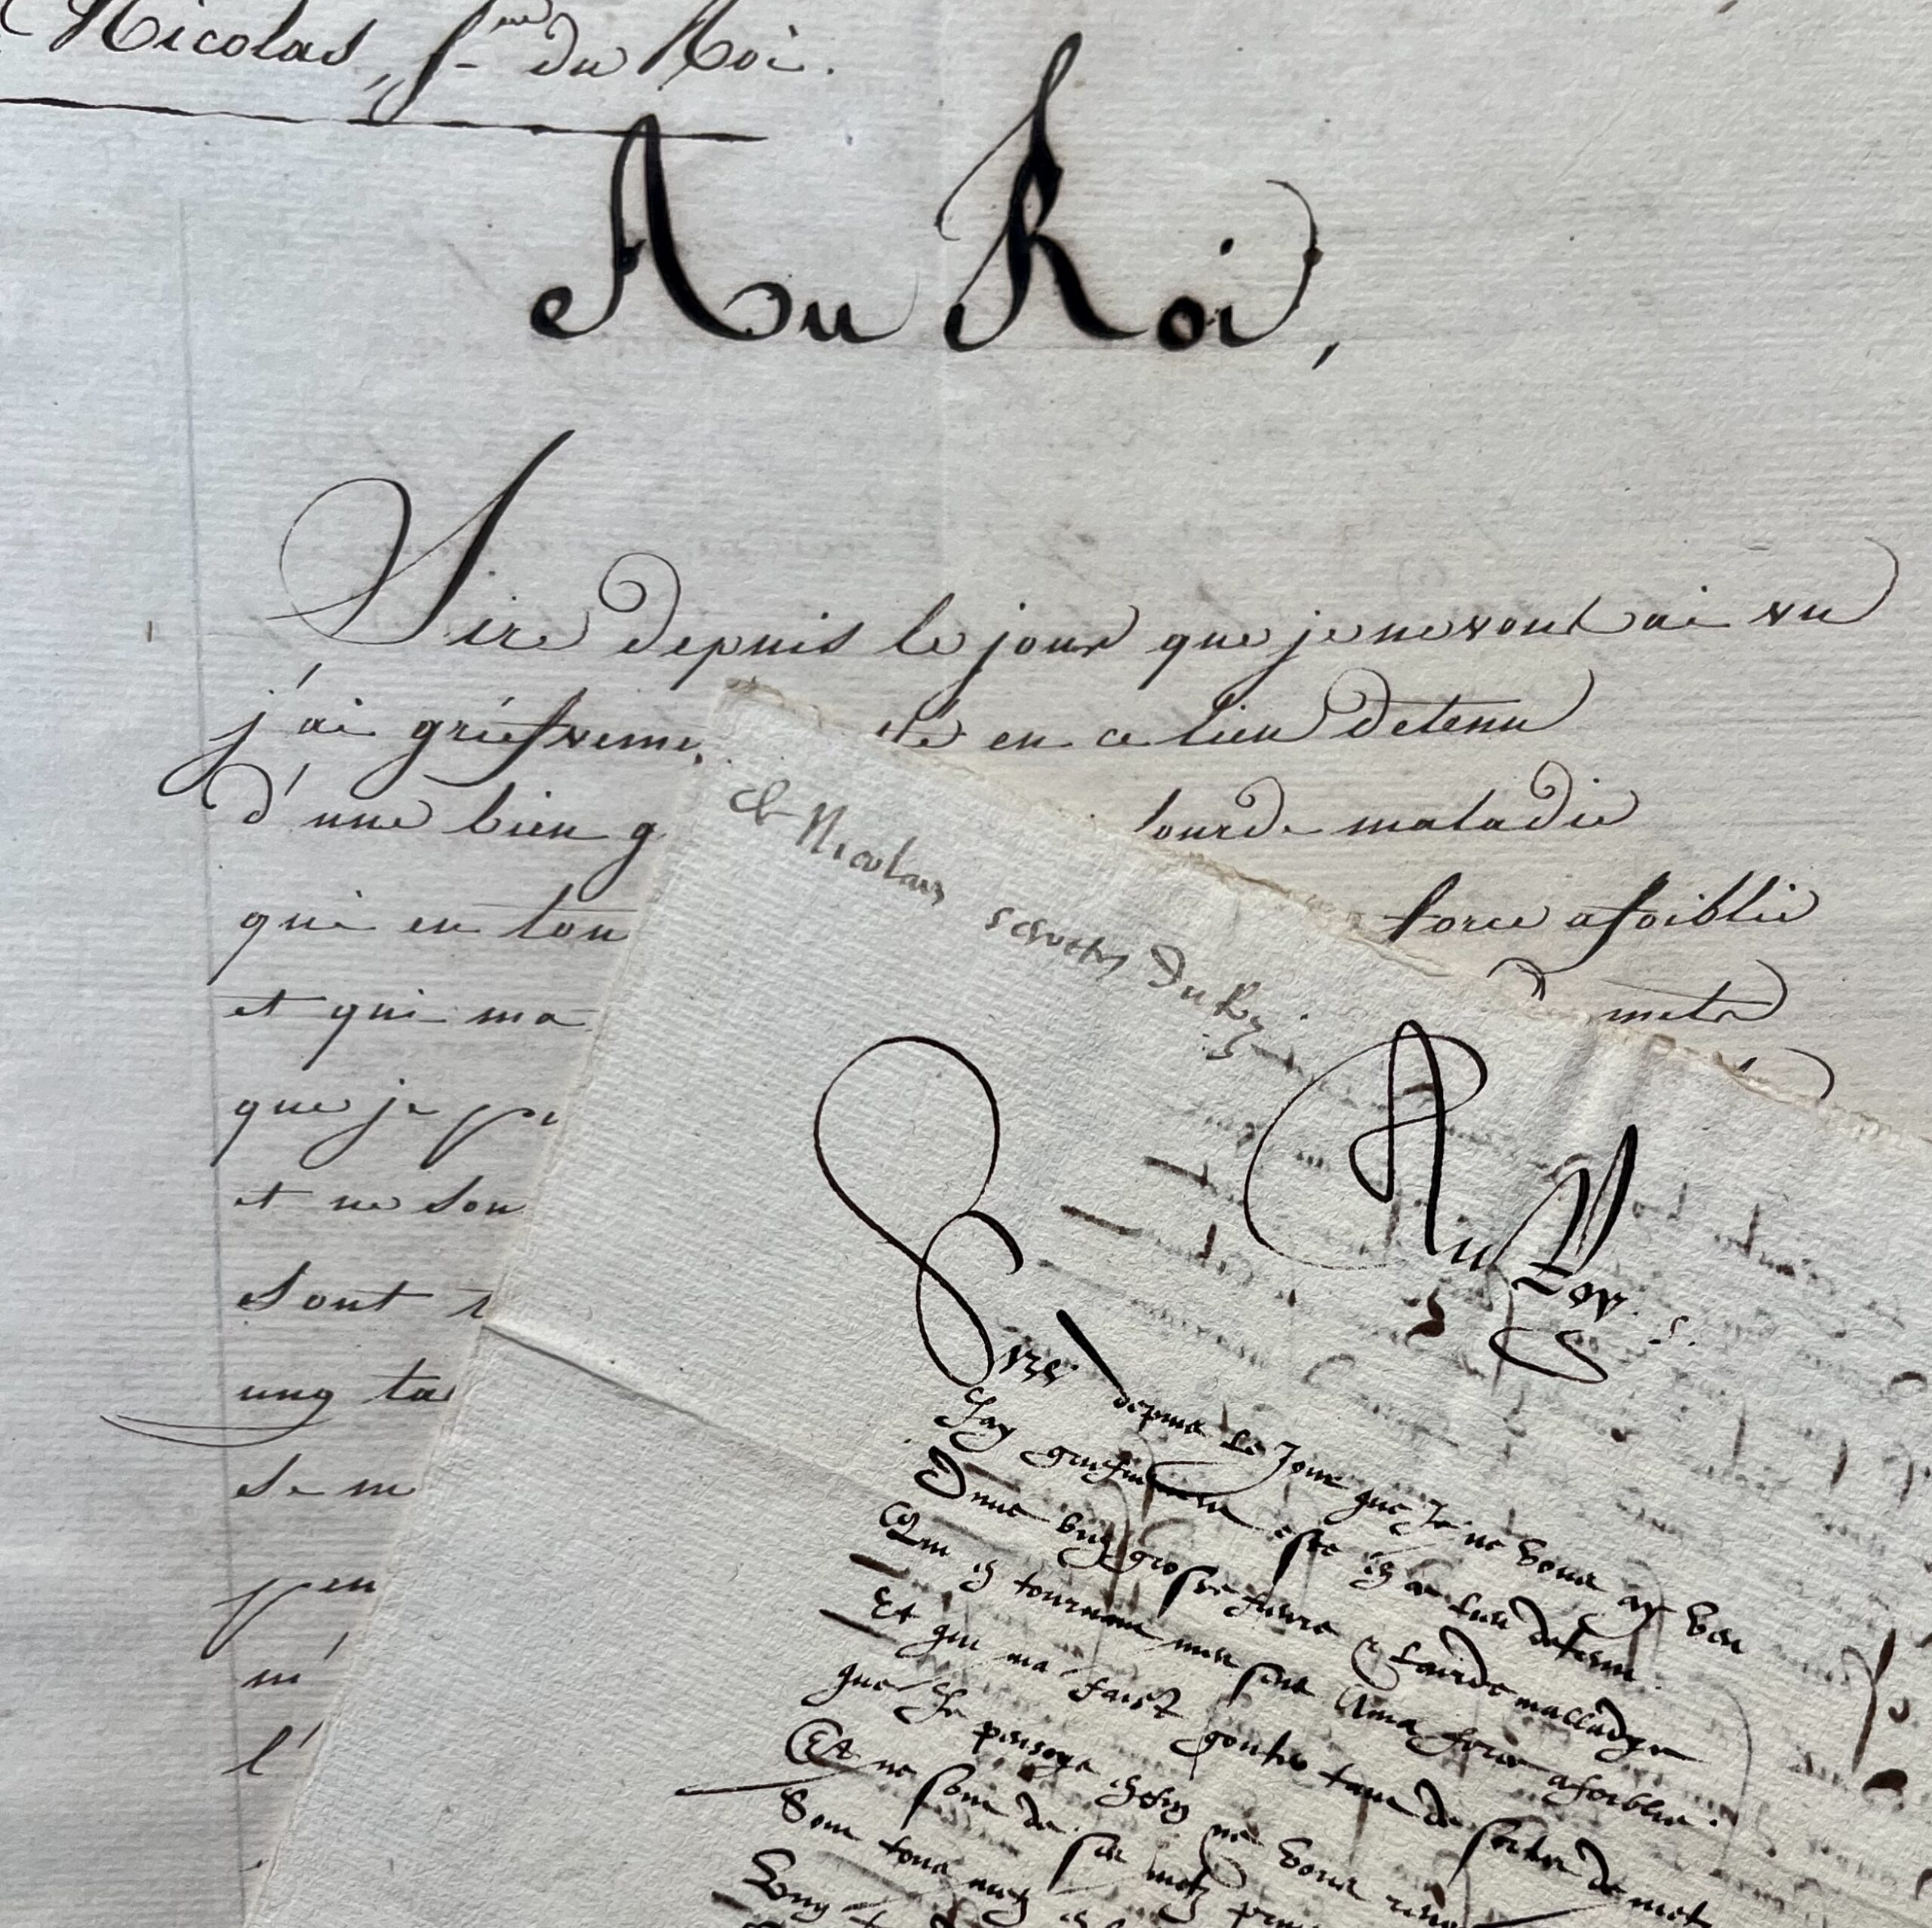 Nicolas, S.re du Roi.
Au Roi,
Sire depuis le jour que je ne vous ai vu
j'ai griefveme té en ce lieu detenu
d'une bien g lourde maladie
qui en tou force afoiblie
et qui ma de mets
que je pe
et ne son
sont
ung ta
se m
peu
m'
l'
& Nicolas secret.re du Roy.
Au Roy. S.
Sire depuis le Jour que Je ne vous ay veu
Jay griefvement este en ce lieu detenu.
Dune bien grosse fievre & lourde malladye
Qui en tournant mes sens A ma force afoiblie.
Et qui ma faict gouster tant de sortes de metz
que Je pensoys enfin ne vous
Et ne sont de ses metz
Sont tous metz
Ung